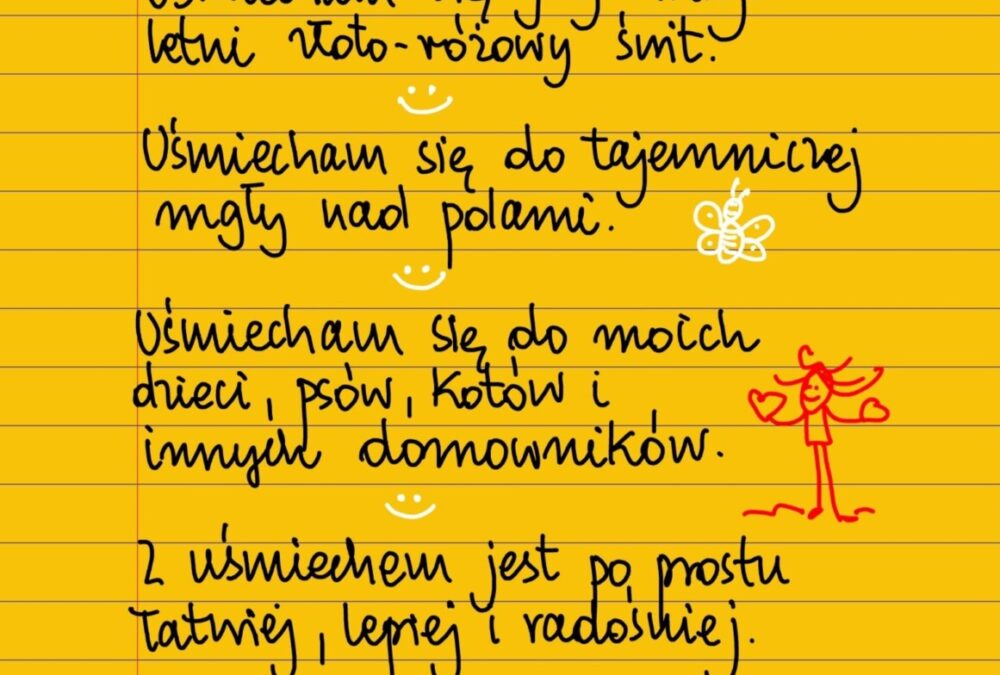 Uśmiecham się gdy
letni złoto-różowy świt.
Uśmiecham się do tajemniczej
mgły nad polami.
Uśmiecham się do moich
dzieci, psów, kotów i
innych domowników.
Z uśmiechem jest po prostu
łatwiej, lepiej i radośniej.